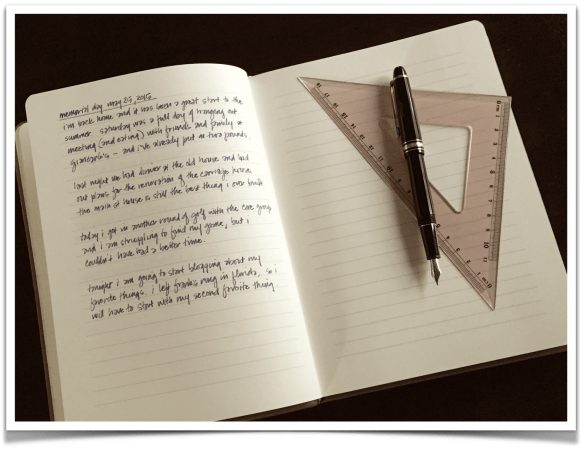 memorial day may 25, 2015
i'm back home and it has been a great start to the
summer. saturday was a full day of hanging out
meeting (and eating) with friends and family at
– and i've already put on two pounds.
last night we had dinner at the old house and laid
out plans for the renovation of the carriage house.
the main st house is still the best thing i ever built
today i got in another round of golf with the core group
and i am struggling to find my game, but i
couldn't have had a better time.
tonight i am going to start blogging about my
favorite things. i left mug in florida, so i
will have to start with my second favorite thing